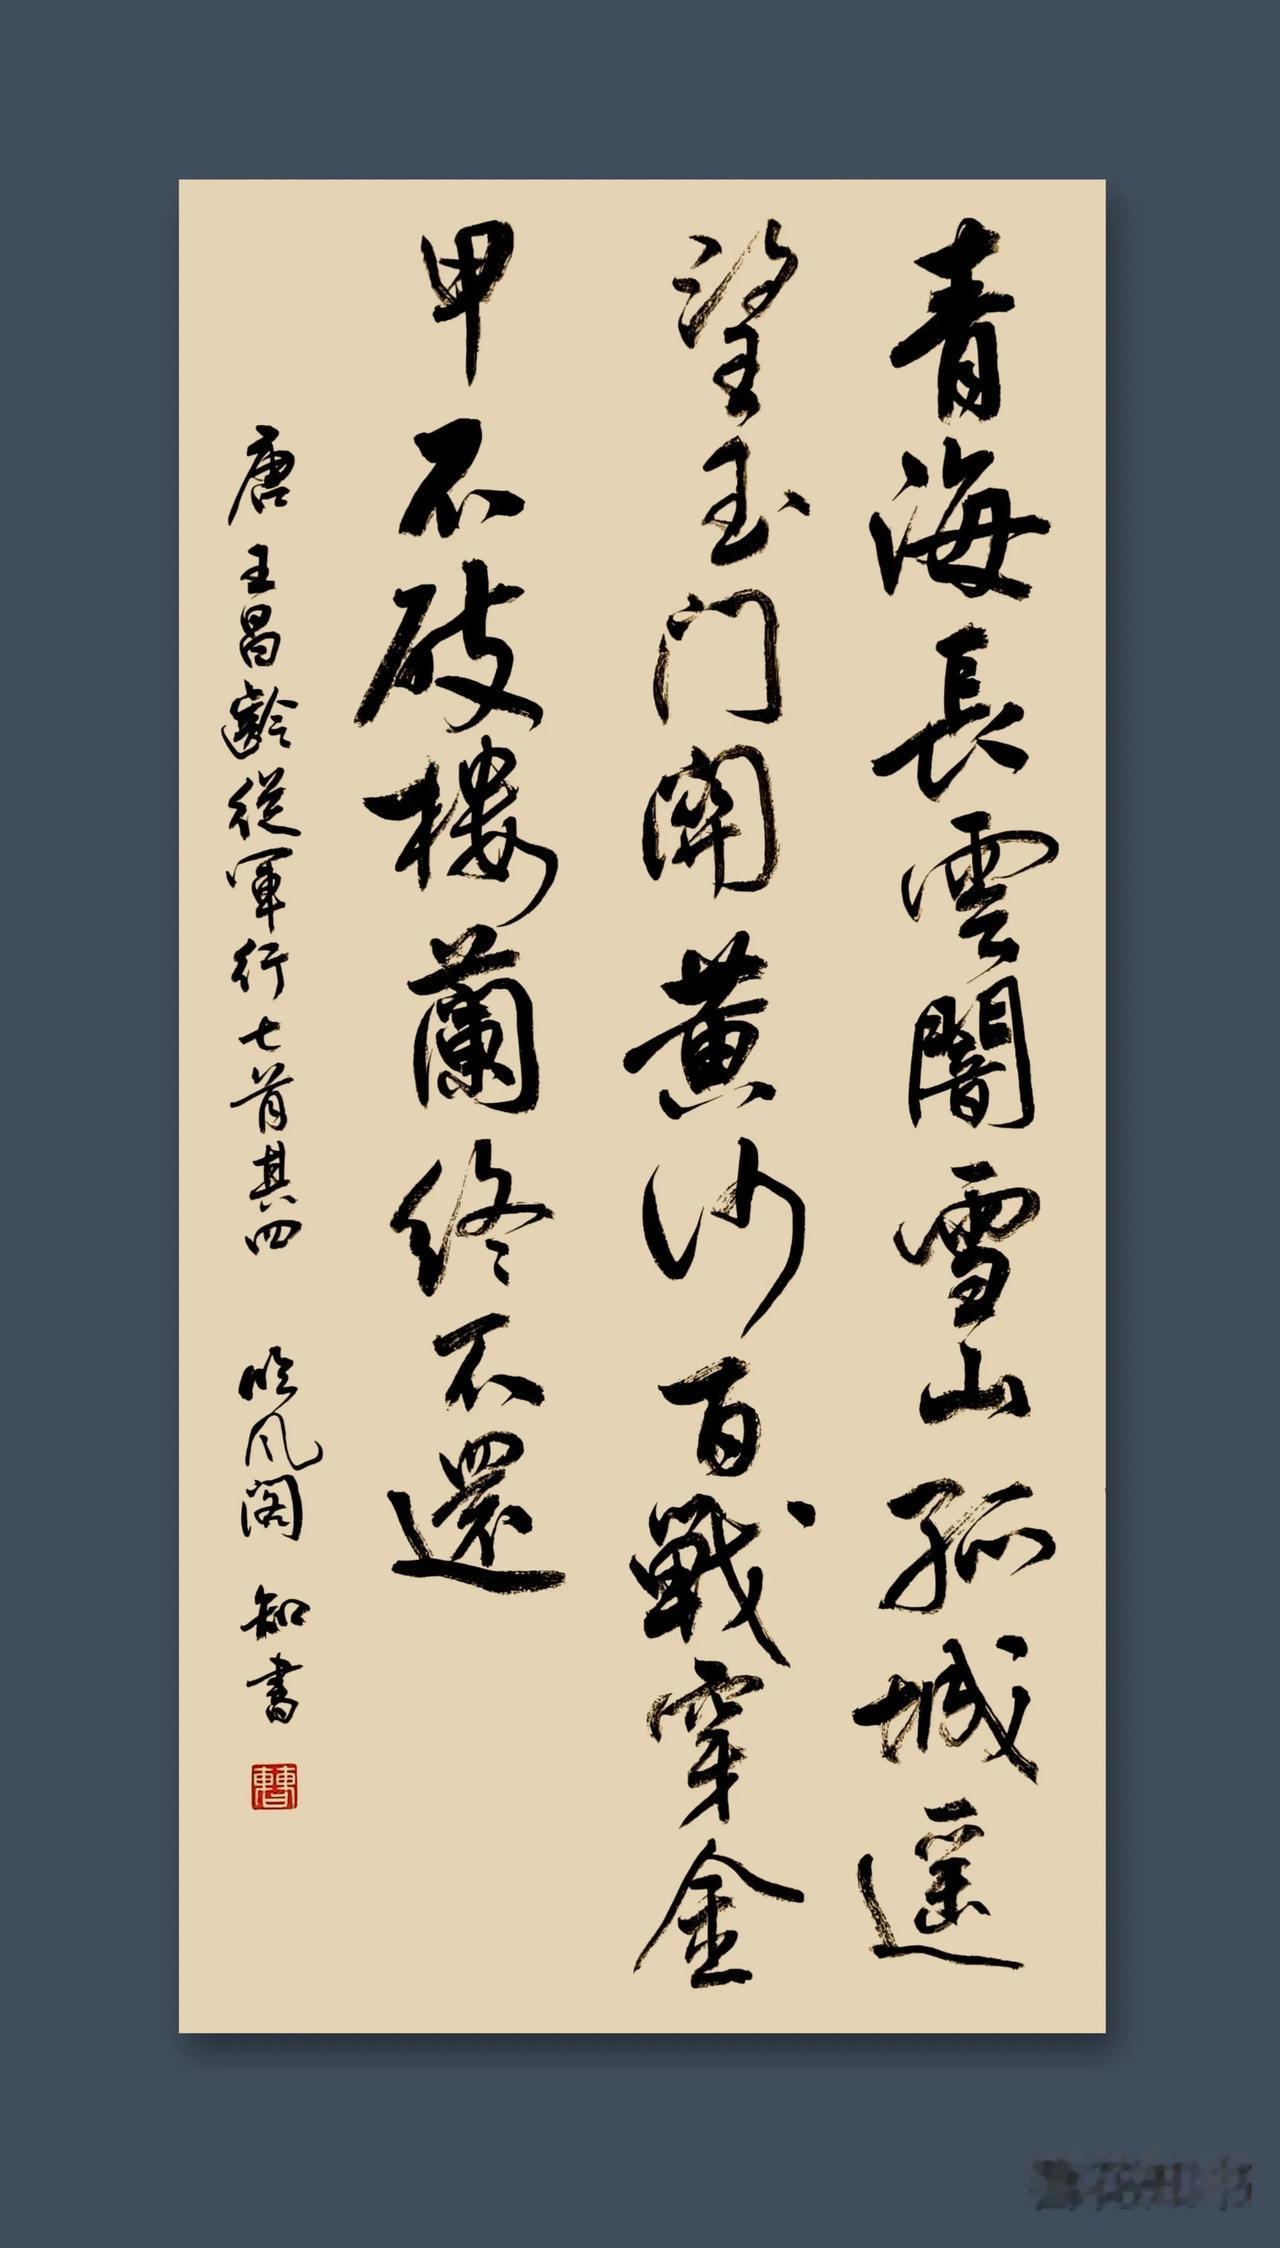 青海長雲闇雪山孤城遥
望玉门關黄沙百戰穿金
甲不破樓蘭終不還
唐王昌齡從軍行七首其四 吟风阁 知書